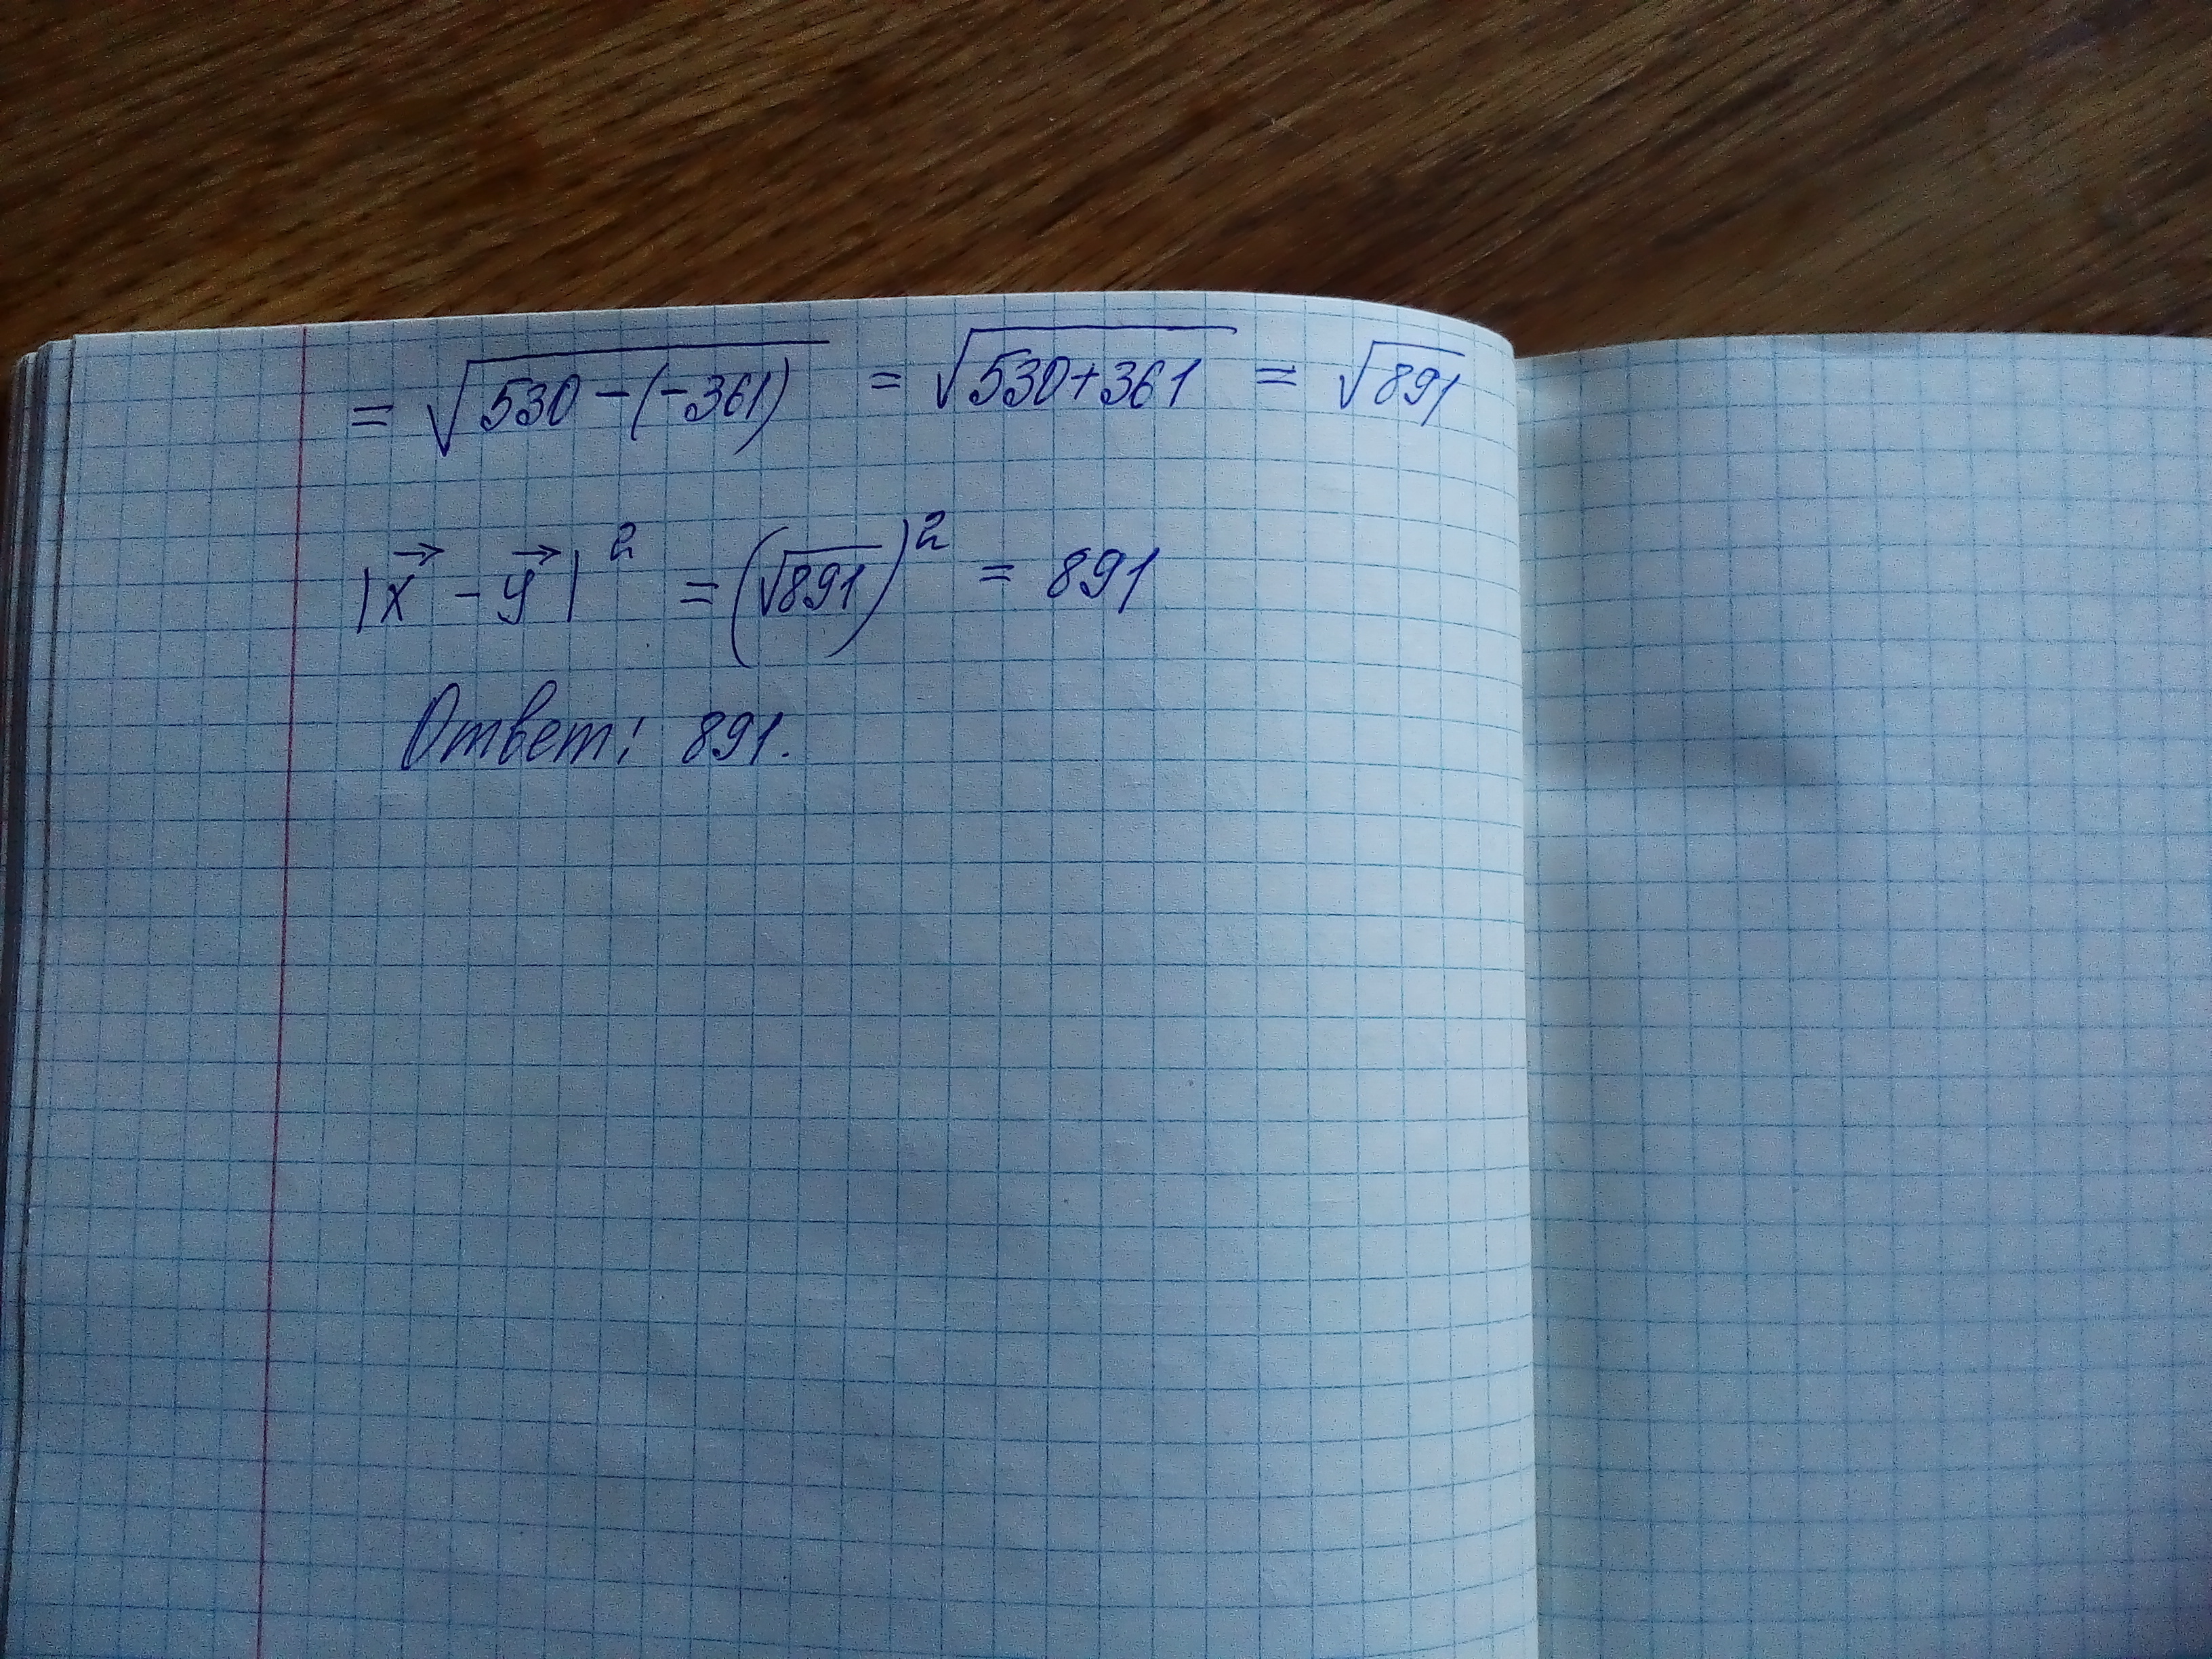 = √(530 - (-361)) = √(530+361) = √891
|x⃗ - y⃗|² = (√891)² = 891
Ответ: 891.